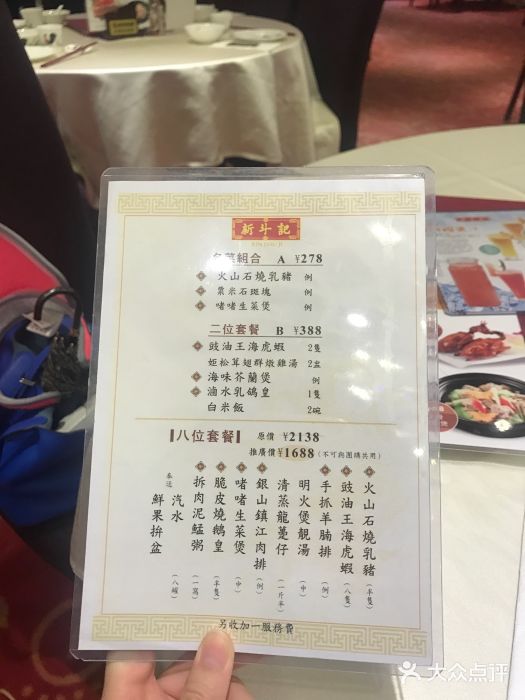 新斗記
名菜組合 A ¥278
火山石燒乳豬 例
粟米石斑塊 例
啫啫生菜煲 例
二位套餐 B ¥388
豉油王海虎蝦 2隻
姬松茸翅群燉雞湯 2盅
海味芥蘭煲 例
滷水乳鴿皇 1隻
白米飯 2碗
八位套餐 原價 ¥2138
推廣價¥1688 (不可與團購共用)
火山石燒乳豬 (半隻)
豉油王海虎蝦 (八隻)
手抓羊腩排 (例)
明火煲靚湯 (中)
清蒸龍躉仔 (一斤半)
銀山鎮江肉排 (例)
啫啫生菜煲 (中)
脆皮燒鵝皇 (半隻)
拆肉泥鯭粥 (一窩)
奉送 汽水 (八罐)
鮮果拼盆
另收加一服務費
大众点评